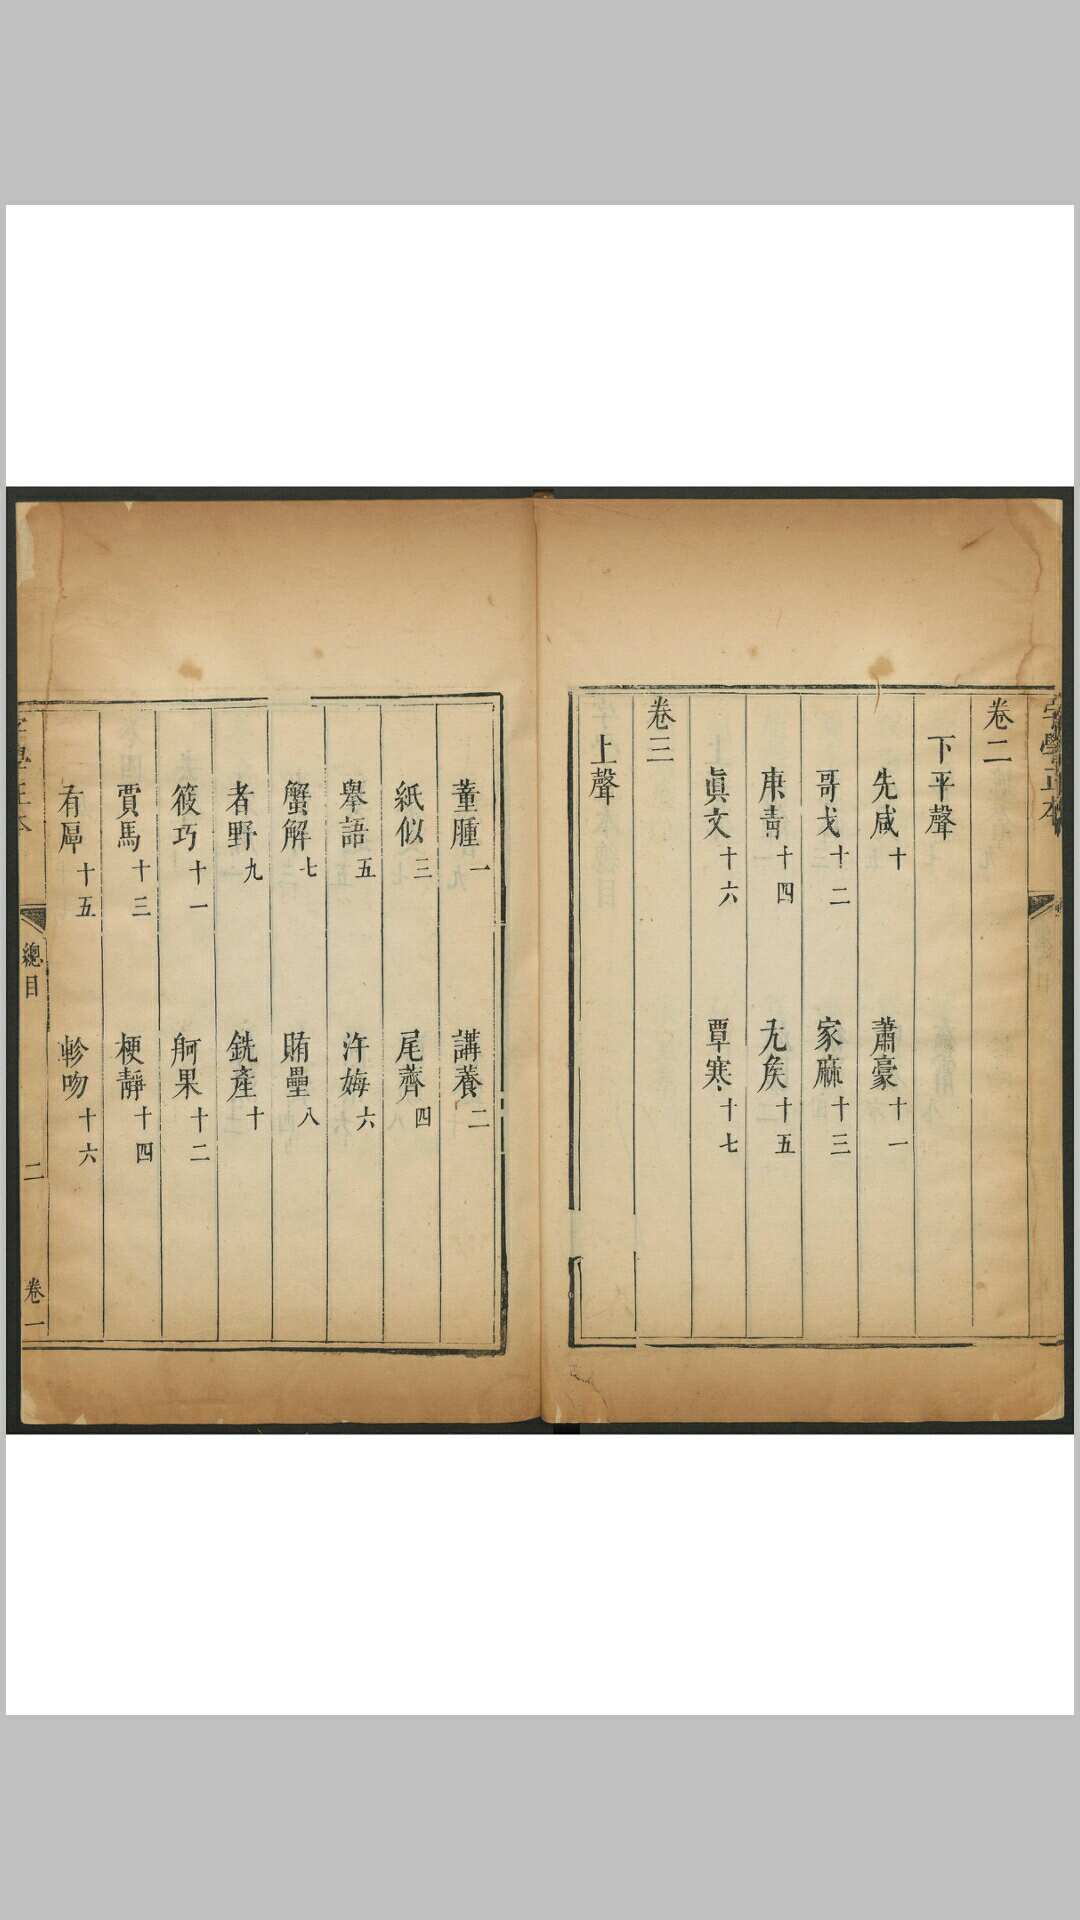 字學正本
卷二
下平聲
先咸十 蕭豪十一
哥戈十二 家麻十三
庚青十四 尤矦十五
眞文十六 覃寒十七
卷三
上聲
董腫一 講養二
紙似三 尾薺四
舉語五 許姆六
蟹解七 賄壘八
者野九 銑產十
筱巧十一 舸果十二
賈馬十三 梗靜十四
有厚十五 軫吻十六
總目 二 卷一